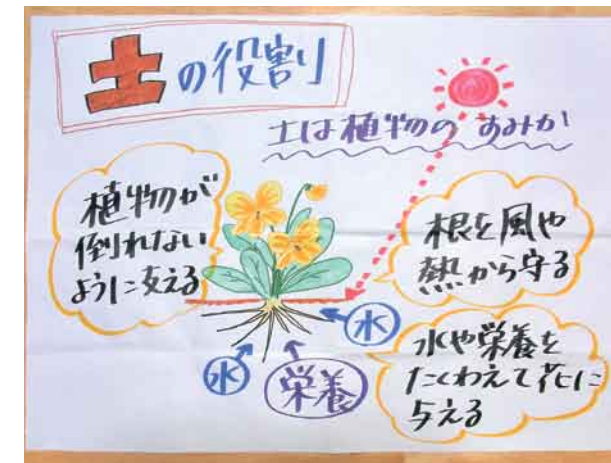 土の役割
土は植物のすみか
植物が
倒れない
ように支える
根を風や
熱から守る
水
水
栄養
水や栄養を
たくわえて花に
与える